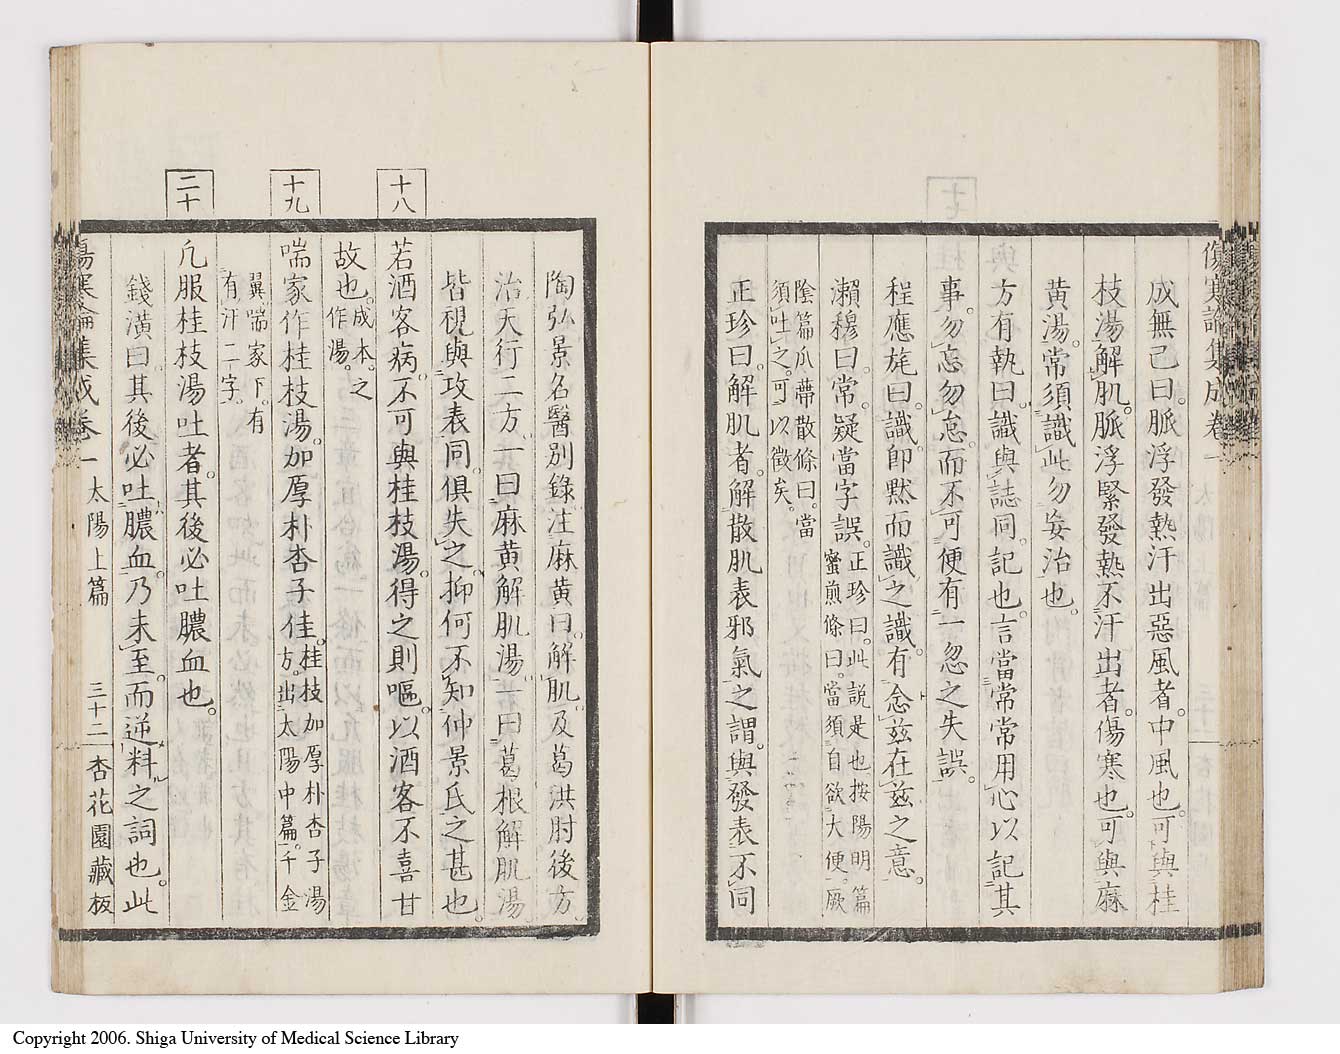 傷寒論集成卷一
成無己曰。脈浮發熱汗出惡風者。中風也。可與桂
枝湯解肌。脈浮緊發熱不汗出者。傷寒也。可與麻
黃湯。常須識此勿妄治也。
方有執曰。識與誌同。記也。言當常常用心以記其
事。勿忘勿怠。而不可便有一忽之失誤。
程應旄曰。識。卽默而識之識。有念茲在茲之意。
瀨穆曰。常。疑當字誤。正珍曰。此說是也。按陽明篇
蜜煎條曰。當須自欲大便。厥
陰篇瓜蔕散條曰。當
須吐之。可以徵矣。
正珍曰。解肌者。解散肌表邪氣之謂。與發表不同
陶弘景名醫別錄注麻黃曰。解肌。及葛洪肘後方
治天行二方。一曰麻黃解肌湯。一曰葛根解肌湯
皆視與攻表同。俱失之。抑何不知仲景氏之甚也。
十八
若酒客病。不可與桂枝湯。得之則嘔。以酒客不喜甘
故也。成本。之
作湯。
十九
喘家作桂枝湯。加厚朴杏子佳。桂枝加厚朴杏子湯
方。出太陽中篇。千金
翼喘家下。有
有汗二字。
二十
凢服桂枝湯吐者。其後必吐膿血也。
錢潢曰。其後必吐膿血。乃未至。而逆料之詞也。此
傷寒論集成卷一 太陽上篇 三十二 杏花園藏板
Copyright 2006. Shiga University of Medical Science Library